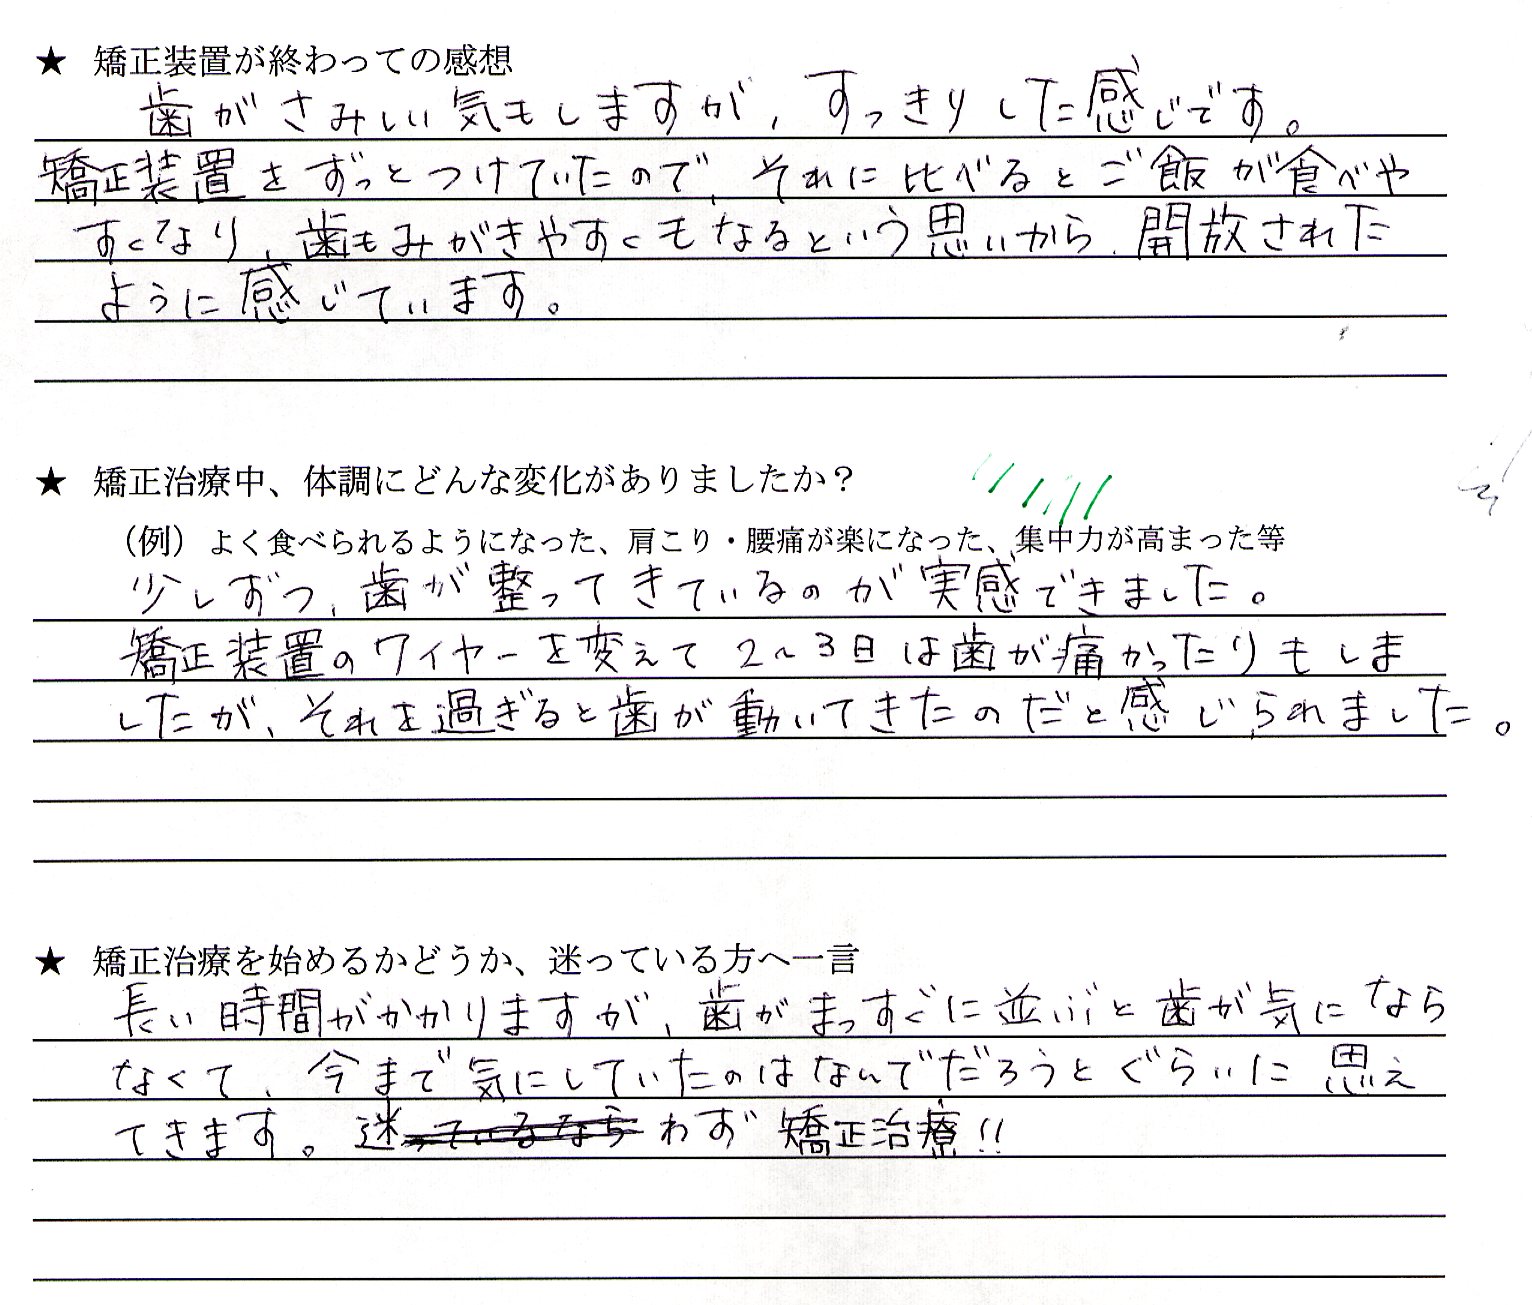 ★ 矯正装置が終わっての感想
歯がさみしい気もしますが、すっきりした感じです。
矯正装置をずっとつけていたので、それに比べるとご飯が食べや
すくなり、歯もみがきやすくもなるという思いから、開放された
ように感じています。
★ 矯正治療中、体調にどんな変化がありましたか?
（例）よく食べられるようになった、肩こり・腰痛が楽になった、集中力が高まった等
少しずつ、歯が整ってきているのが実感できました。
矯正装置のワイヤーを変えて2~3日は歯が痛かったりもしま
したが、それを過ぎると歯が動いてきたのだと感じられました。
★ 矯正治療を始めるかどうか、迷っている方へ一言
長い時間がかかりますが、歯がまっすぐに並ぶと歯が気になら
なくて、今まで気にしていたのはなんでだろうとぐらいに思え
てきます。迷っているなら わず 矯正治療!!